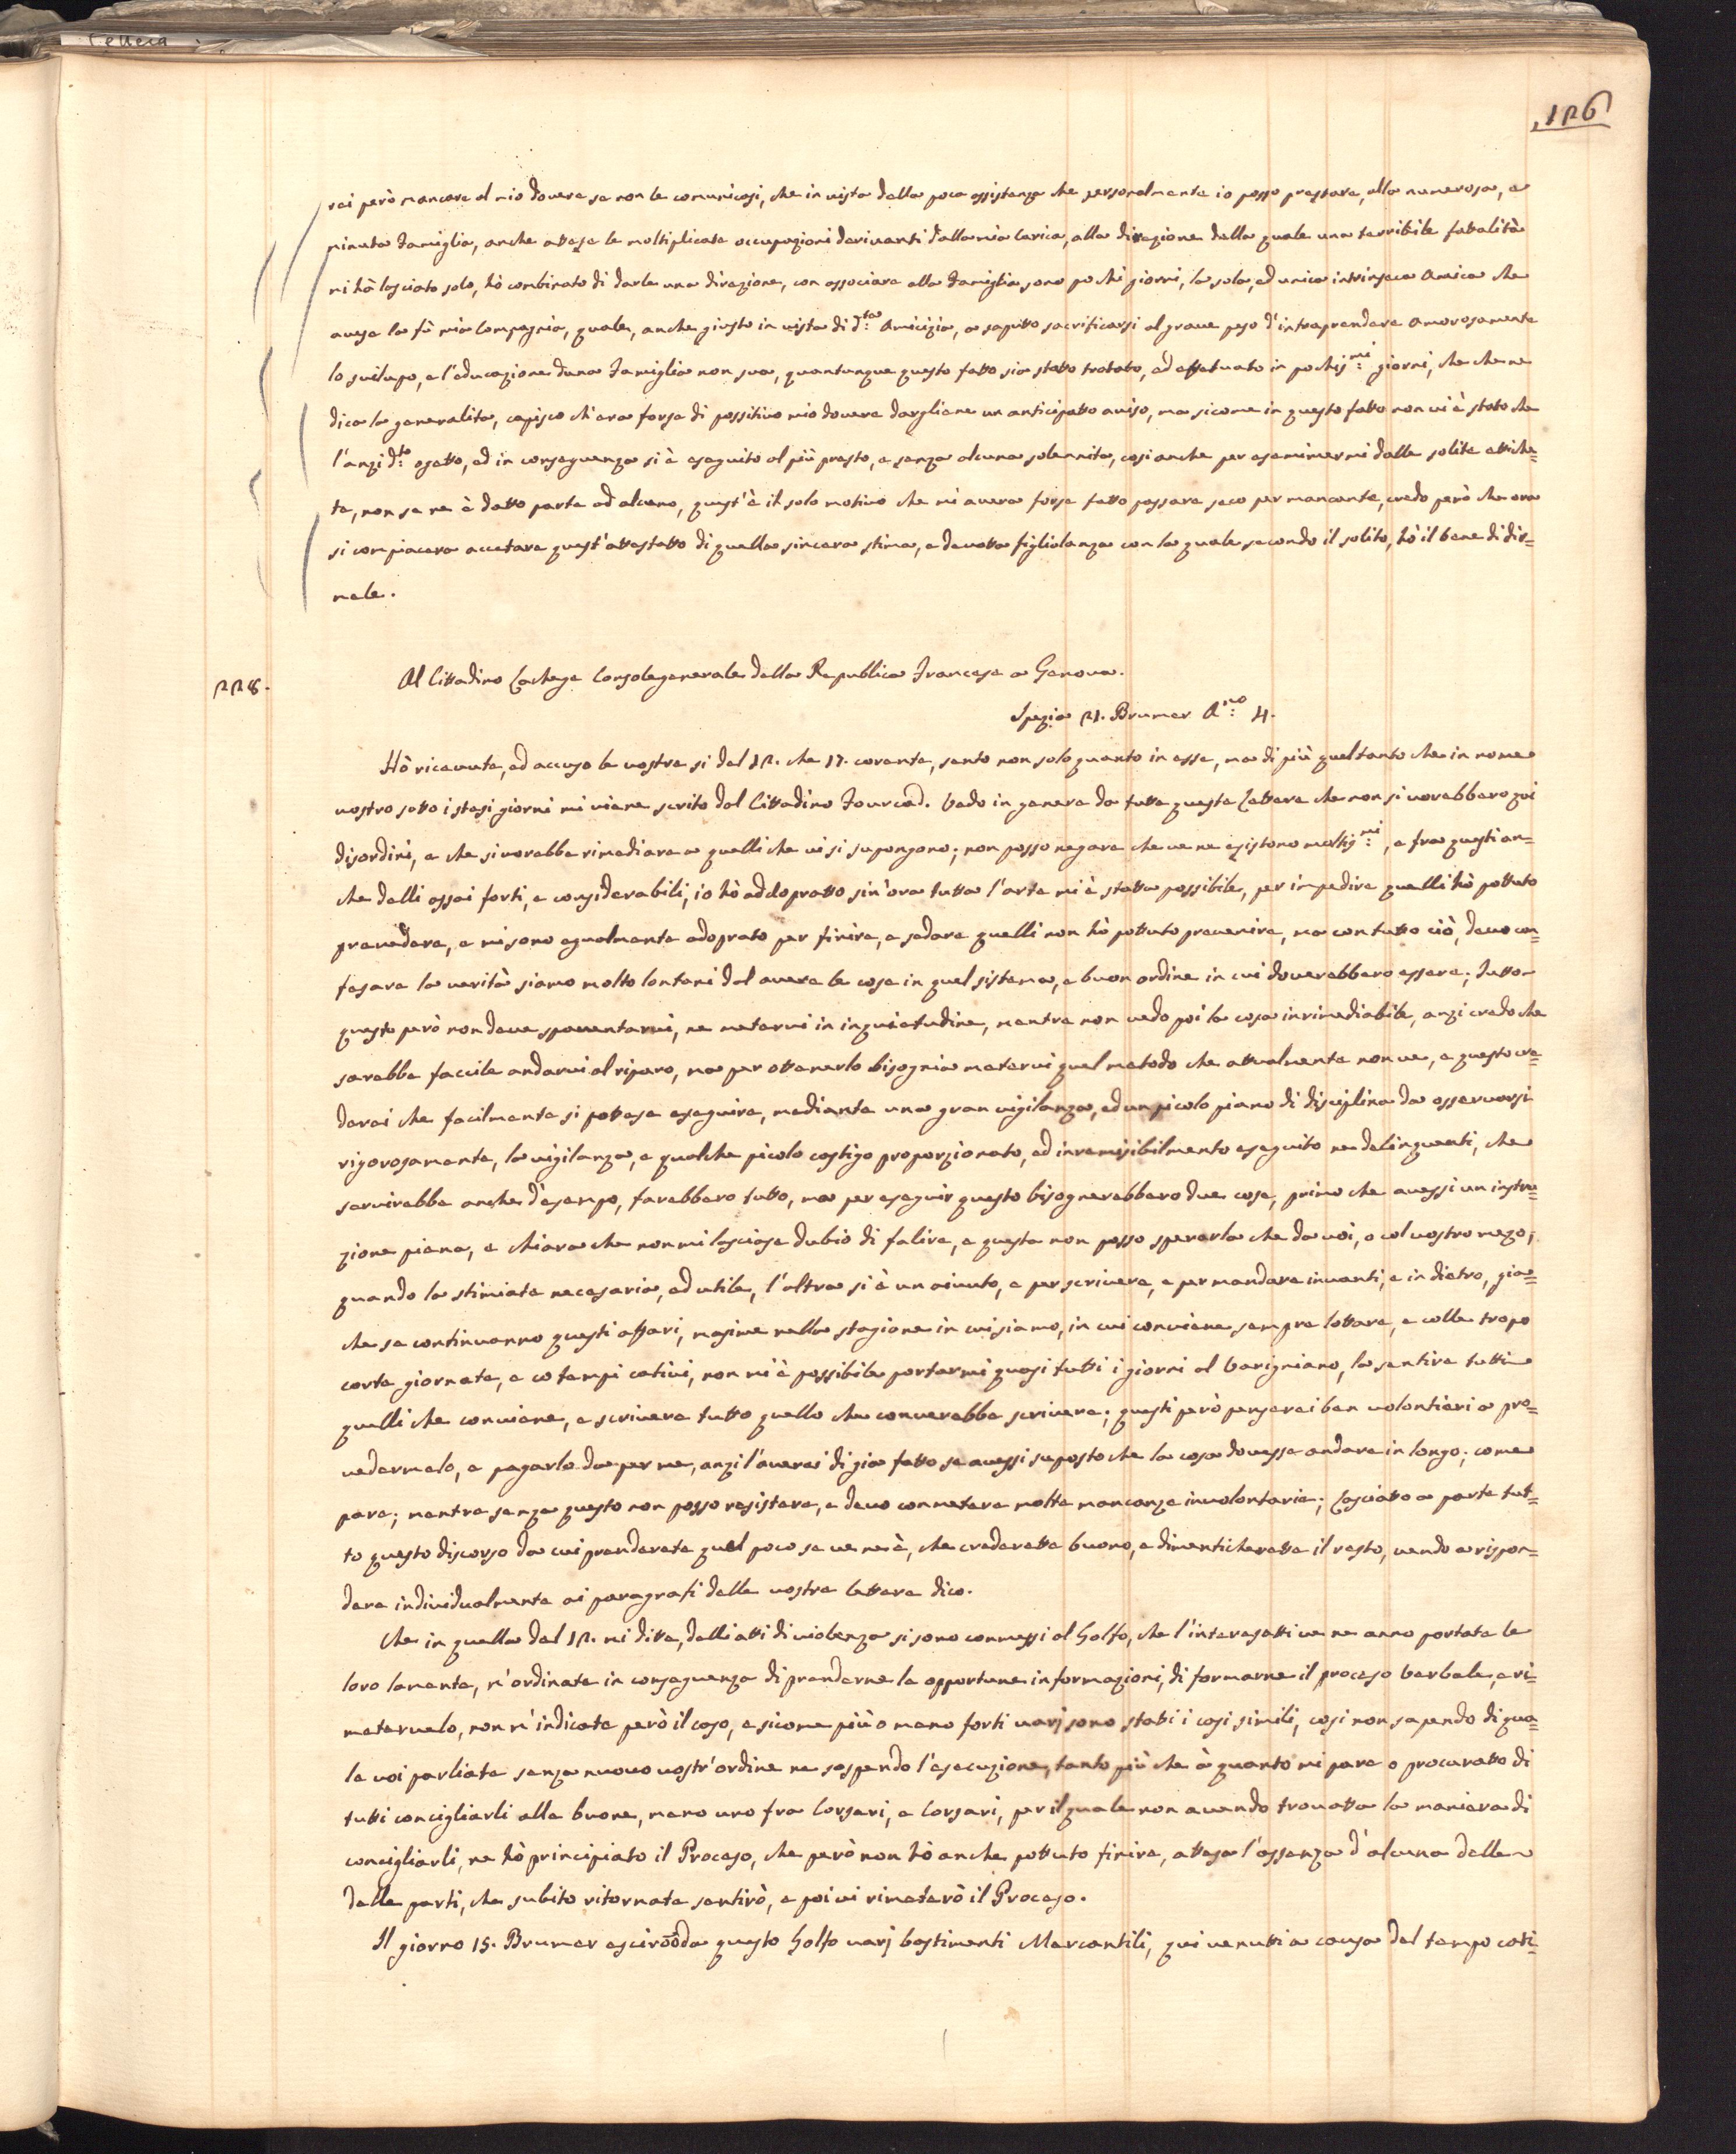 126
rei però mancare al mio dovere se non le comunicasi, che in vista della poca assistenza che personalmente io posso prestare, alla numerosa, e
minuta famiglia, anche attese le moltiplicate occupazioni derivanti dalla mia Carica, alla direzione della quale una terribile fattalità
mi hà lasciato solo, hò combinato di darle una direzione, con associare alla famiglia sono pochi giorni, la sola, ed unica intrinseca Amica che
avesse la fù mia Compagnia, quale, anche giusto in vista di d:ta Amicizia, a saputto sacrificarsi al grave peso d'intraprendere amorosamente
lo svilupo, e l'educazione duna famiglia non sua, quantunque questo fatto sia statto trattato, ed effetuato in pochis:mi giorni, che che ne
dica la generalita, capisco ch'era forse di possitivo mio dovere dargliene un anticipatto aviso, ma sicome in questo fatto non vi è stato che
l'anzid:to ogetto, ed in conseguenza si è eseguito al più presto, e senza alcuna solennita, cosi anche per esemimermi dalle solite ettiche=
te, non se ne è datto parte ad alcuno, quest'è il solo motivo che mi avera forse fatto passare seco per mancante, credo però che ora
si compiacera accetare quest'attestatto di quella sincera stima, e devotta figliolanza con la quale secondo il solito, hò il bene di dir=
mele.
228.
Al Cittadino Lachege Console generale della Republica Francese a Genova.
Spezia 21. Brumer A:no 4.
Hò ricevute, ed accuso le vostre si del 12. che 17. corente, sento non solo quanto in esse, ma di più quel tanto che in nome
vostro sotto i stesi giorni mi viene scrito dal Cittadino Fourcad. Vedo in genere da tutte queste Lettere che non si vorebbero qui
disordini, e che si vorebbe rimediare a quelli che vi si supongono; non posso negare che ve ne esistono moltis:mi, e fra questi an=
che delli assai forti, e considerabili, io hò addopratto sin'ora tutta l'arte mi è statta possibile, per impedire quelli hò pottuto
prevedere, e mi sono egualmente adoprato per finire, e sedare quelli non hò pottuto prevenire, ma con tutto ciò, devo con=
fesare la verità siamo molto lontani dal avere le cose in quel sistema, e buon ordine in cui doverebbero essere; Tutto
questo però non deve spaventarvi, ne metervi in inquietudine, mentre non vedo poi la cosa inrimediabile, anzi credo che
sarebbe faccile andarvi al riparo, ma per ottenerlo bisognia metervi quel metodo che attualmente non ve, e questo cre=
derei che facilmente si pottese eseguire, mediante una gran vigilanza, ed un picolo piano di disciplina da osservarsi
rigorosamente, la vigilanza, e qualche picolo castigo proporzionato, ed inremisibilmento eseguito ne delinquenti, che
servirebbe anche d'esempo, farebbero tutto, ma per eseguir questo bisognerebbero due cose, primo che avessi un instru=
zione piena, e chiara che non mi lasciase dubio di falire, e questa non posso sperarla che da voi, o col vostro mezo;
quando la stimiate necesaria, ed utile, l'altra si è un aiuuto, e per scrivere, e per mandare invanti, e in dietro, gia=
che se continuanno questi affari, masime nella stagione in cui siamo, in cui conviene sempre lottare, e colle tropo
corte giornate, e co tempi cativi, non mi è possibile portarmi quasi tutti i giorni al Varigniano, la sentire tutti
quelli che conviene, e scrivere tutto quello che converebbe scrivere; questi però penserei ben volontieri a pro=
vedermelo, e pagarlo da per me, anzi l'averei di gia fatto se avessi suposto che la cosa dovesse andare in longo; come
pare; mentre senza questo non posso resistere, e devo commetere molte mancanze involontarie; Lasciatto a parte tut=
to questo discorso da cui prenderete quel poco se ve ne è, che crederette buono, e dimenticherette il resto, vendo a rispon=
dere individualmente ai paragrafi delle vostre lettere dico.
Che in quella del 12. mi ditte, delli atti di violenza si sono commessi al Golfo, che l'interesatti ve ne anno portate le
loro lamente, m'ordinate in conseguenza di prenderne le opportune informazioni, di formarne il proceso verbale, e ri=
metervelo, non m'indicate però il caso, e sicome più o meno forti varj sono stati i casi simili, cosi non sapendo di qua=
le voi parliate senza nuovo vostr'ordine ne sospendo l'esecuzione, tanto più che à quanto mi pare o procuratto di
tutti concigliarli alle buone, meno uno fra Corsari, e Corsari, per il quale non avendo trovatta la maniera di
concigliarli, ne hò principiato il Proceso, che però non hò anche pottuto finire, attesa l'assenza d'alcuna delle
delle parti, che subito ritornate sentirò, e poi vi rimeterò il Proceso.
Il giorno 15. Brumer escirōō da questo Golfo varj bastimenti Mercantili, qui venutti a causa del tempo cati=